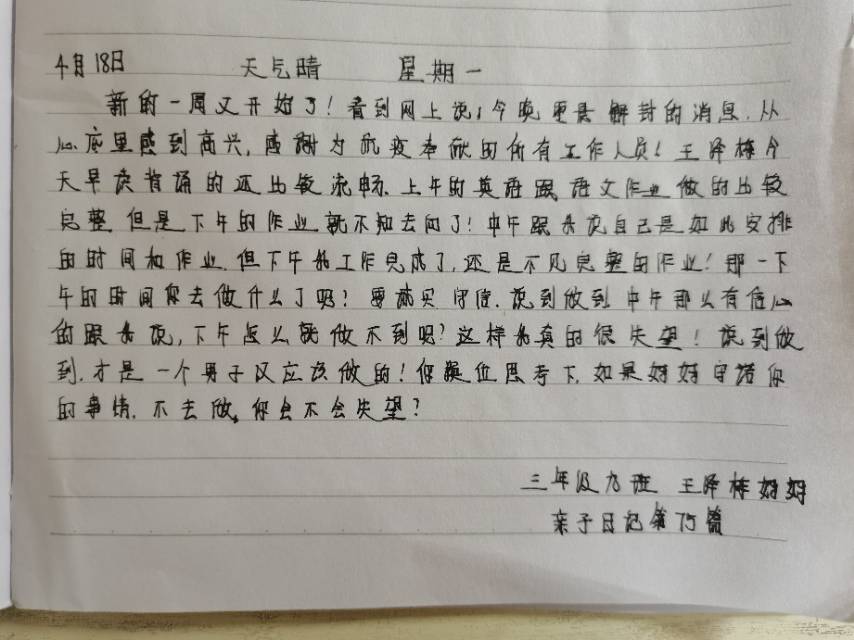 4月18日 天气晴 星期一
新的一周又开始了！看到网上说，今晚更是解封的消息，从
心底里感到高兴，感谢为抗疫奉献的所有工作人员！王泽栋今
天早读背诵的还比较流畅．上午的英语跟语文作业做的比较
完整 但是下午的作业就不知去向了！中午跟我说自己是如此安排
的时间和作业．但下午我工作完成了，还是不见完整的作业！那一下
午的时间你去做什么了呢？要诚实守信．说到做到 中午那么有信心
的跟我说，下午怎么就做不到呢？这样我真的很失望！说到做
到．才是一个男子汉应该做的！你换位思考下．如果妈妈守诺你
的事情．不去做，你会不会失望？
三年级九班 王泽栋妈妈
亲子日记第75篇